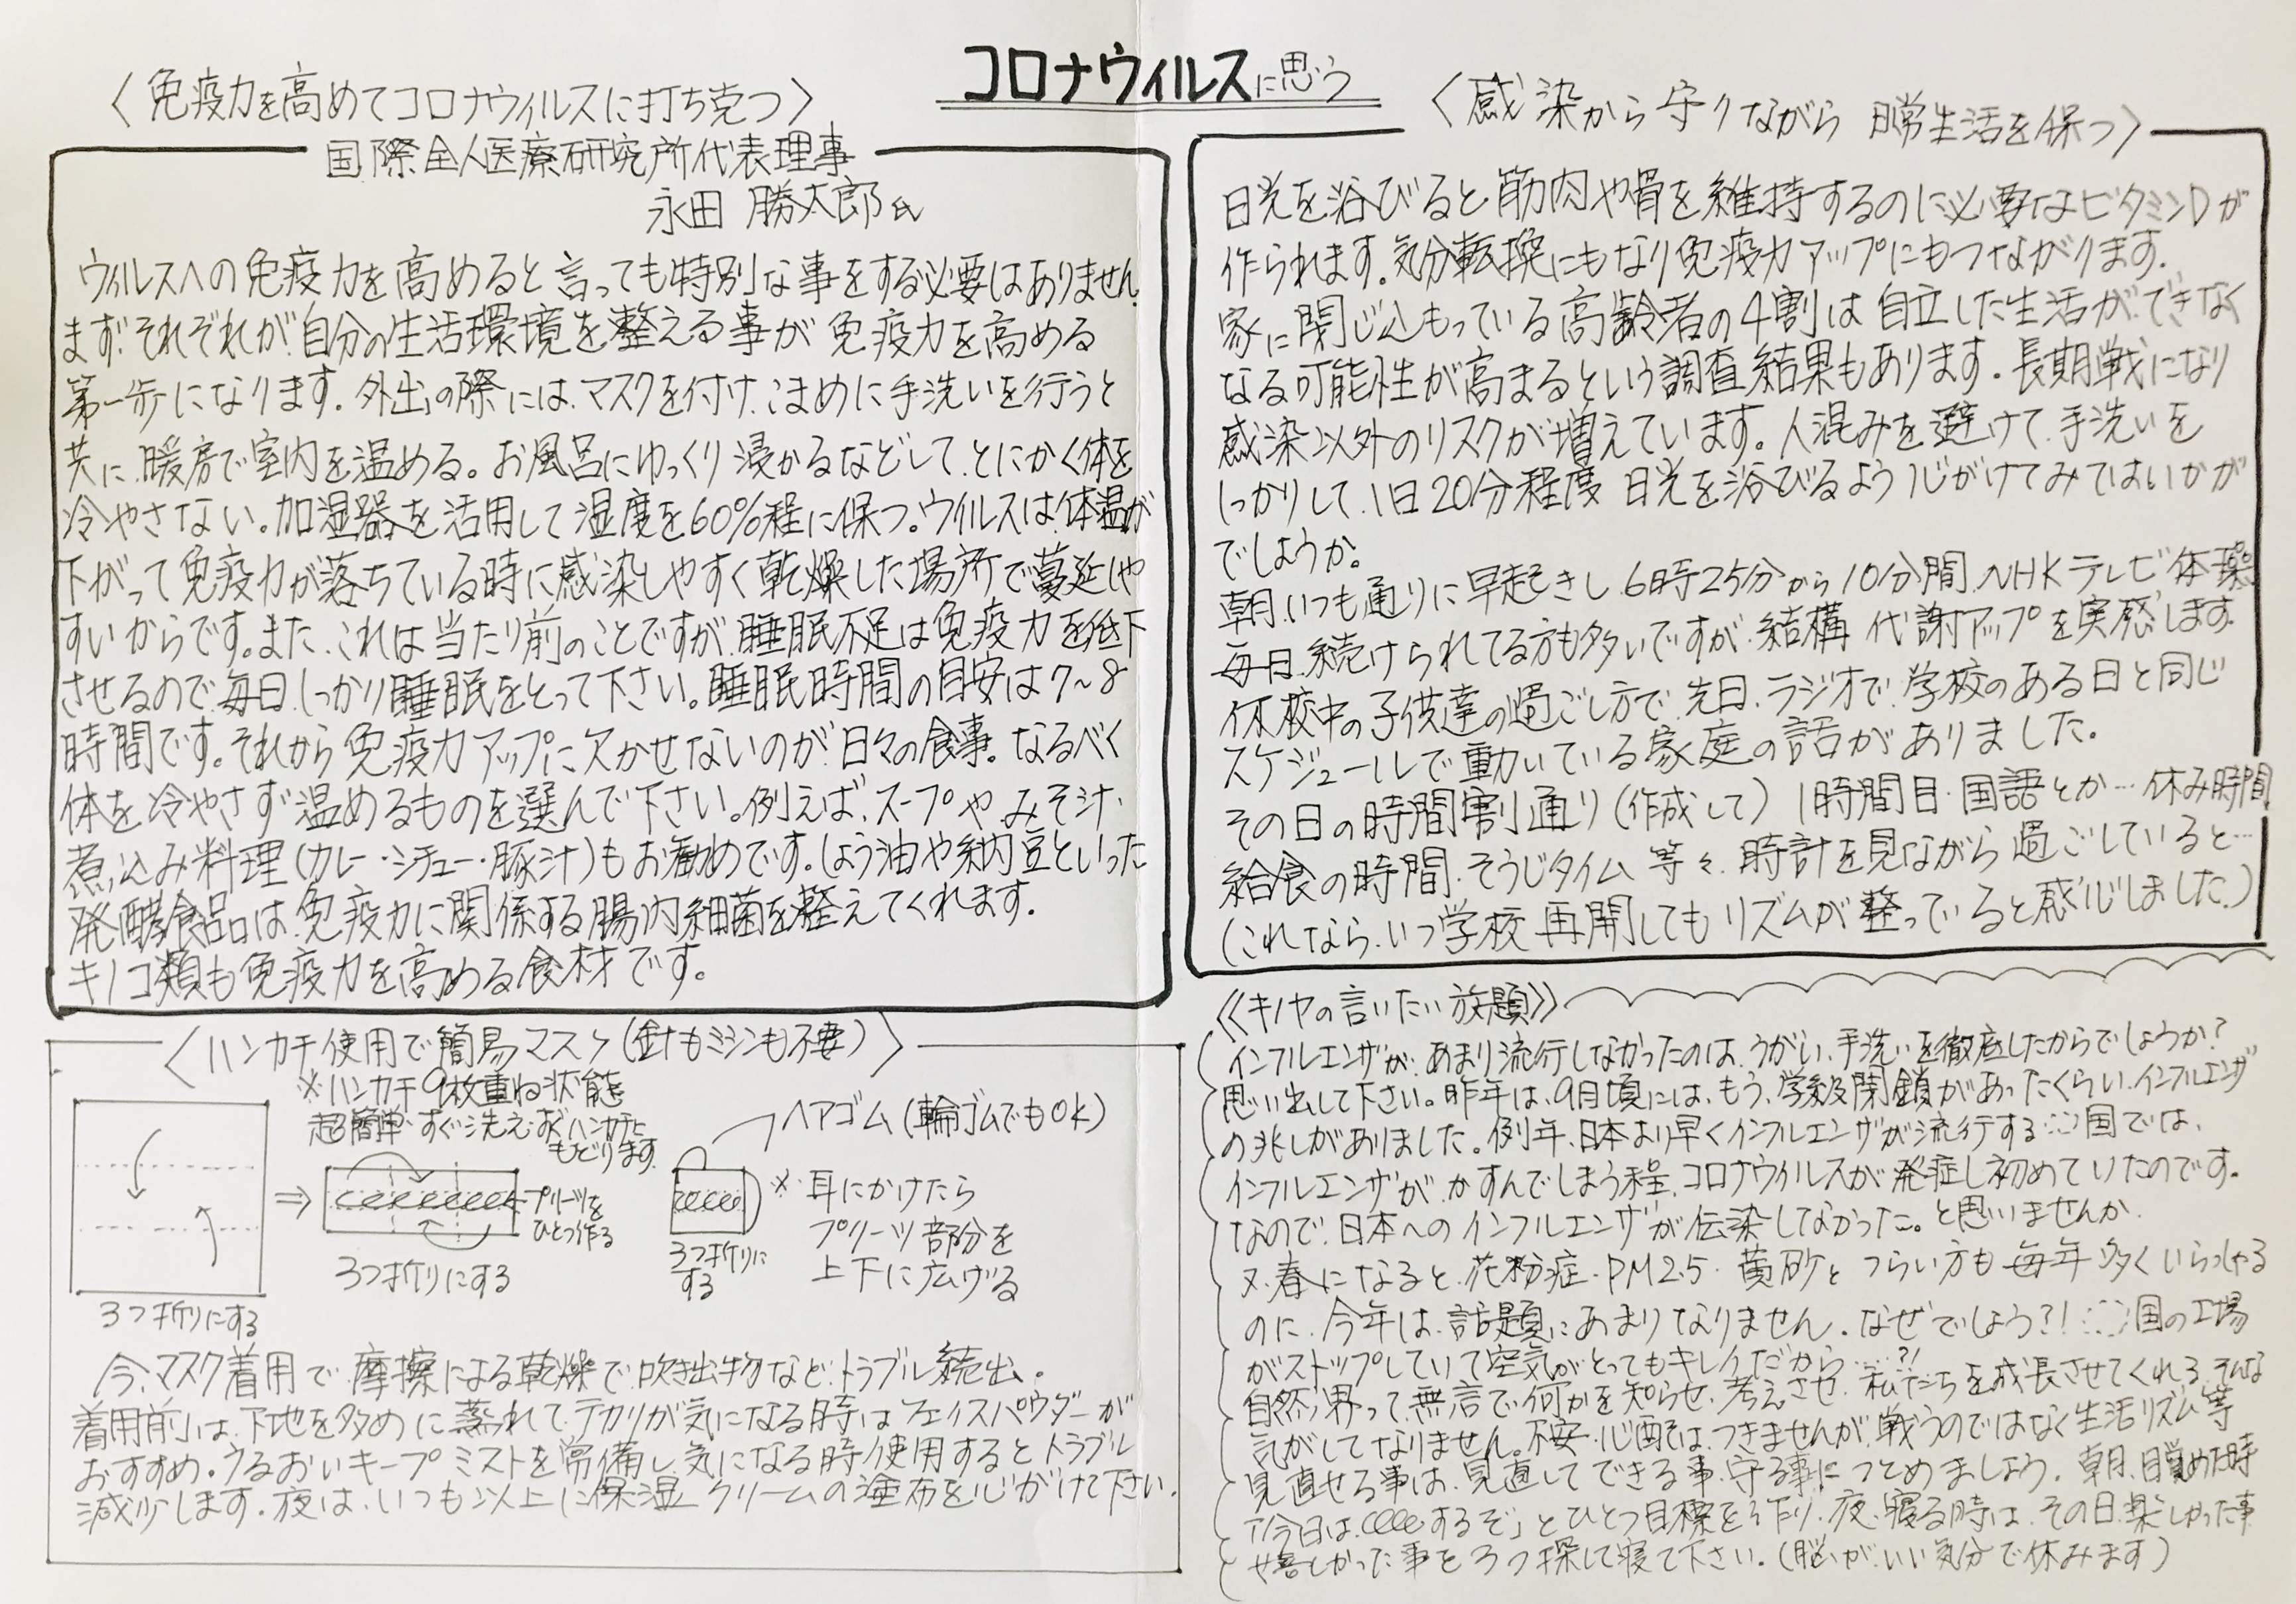 コロナウィルスに思う
〈免疫力を高めてコロナウィルスに打ち克つ〉
国際全人医療研究所代表理事
永田 勝太郎氏
ウィルスへの免疫力を高めると言っても特別な事をする必要はありません
まず、それぞれが、自分の生活環境を整える事が免疫力を高める
第一歩になります。外出の際には、マスクを付け、こまめに手洗いを行うと
共に、暖房で室内を温める。お風呂にゆっくり浸かるなどして、とにかく体を
冷やさない。加湿器を活用して湿度を60%程に保つ。ウイルスは、体温が
下がって免疫力が落ちている時に感染しやすく乾燥した場所で蔓延しや
すいからです。また、これは当たり前のことですが、睡眠不足は免疫力を低下
させるので、毎日、しっかり睡眠をとって下さい。睡眠時間の目安は7~8
時間です。それから免疫力アップに欠かせないのが日々の食事。なるべく
体を冷やさず温めるものを選んで下さい。例えば、スープや、みそ汁、
煮込み料理(カレー・シチュー・豚汁)もお勧めです。しょう油や納豆といった
発酵食品は、免疫力に関係する腸内細菌を整えてくれます。
キノコ類も免疫力を高める食材です。
〈感染から守りながら 日常生活を保つ〉
日光を浴びると筋肉や骨を維持するのに必要なビタミンDが
作られます。気分転換にもなり免疫力アップにもつながります。
家に閉じ込もっている高齢者の4割は自立した生活ができなく
なる可能性が高まるという調査結果もあります。長期戦になり
感染以外のリスクが増えています。人混みを避けて、手洗いを
しっかりして、1日20分程度 日光を浴びるよう心がけてみてはいかが
でしょうか。
朝、いつも通りに早起きし、6時25分から10分間、NHKテレビ体操
毎日、続けられてる方も多いですが、結構 代謝アップを実感します。
休校中の子供達の過ごし方で、先日、ラジオで、学校のある日と同じ
スケジュールで動いている家庭の話がありました。
その日の時間割通り(作成して)1時間目・国語とか…休み時間
給食の時間、そうじタイム 等々、時計を見ながら過ごしていると…
(これなら、いつ学校再開してもリズムが整っていると感じました。)
〈ハンカチ使用で簡易マスク(針もミシンも不要)〉
※ハンカチ9枚重ね状態
超簡単・すぐ洗え、すぐハンカチに
もどります。
ヘアゴム(輪ゴムでもOK)
プリーツを
ひとつ作る
※耳にかけたら
プリーツ部分を
上下に広げる
3つ折りにする
3つ折りにする
3つ折りに
する
今、マスク着用で摩擦による乾燥で、吹き出物など、トラブル続出。
着用前は、下地を多めに 、テカリが気になる時はフェイスパウダーが
おすすめ。うるおいキープミストを常備し、気になる時使用するとトラブル
減少します。夜は、いつも以上に保湿クリームの塗布を心がけて下さい。
《キノヤの言いたい放題》
インフルエンザが、あまり流行しなかったのは、うがい、手洗いを徹底したからでしょうか?
思い出して下さい。昨年は、9月頃には、もう、学級閉鎖があったくらい、インフルエンザ
の兆しがありました。例年、日本より早くインフルエンザが流行する◌国では、
インフルエンザが、かすんでしまう程、コロナウイルスが発症し初めていたのです。
なので、日本へのインフルエンザが伝染しなかった。と思いませんか。
又、春になると、花粉症・PM2.5・黄砂とつらい方も毎年多くいらっしゃる
のに、今年は、話題にあまりなりません。なぜでしょう?!◌国の工場
がストップしていて空気がとってもキレイだから……?!
自然界って、無言で何かを知らせ、考えさせ、私たちを成長させてくれる、そんな
気がしてなりません。不安、心配は、つきませんが、戦うのではなく生活リズム等
見直せる事は、見直してできる事、守る事につとめましょう。朝、目覚めた時
「今日は するぞ」とひとつ目標を作り、夜、寝る時は、その日、楽しかった事
や嬉しかった事を3つ探して寝て下さい。(脳がいい気分で休みます)